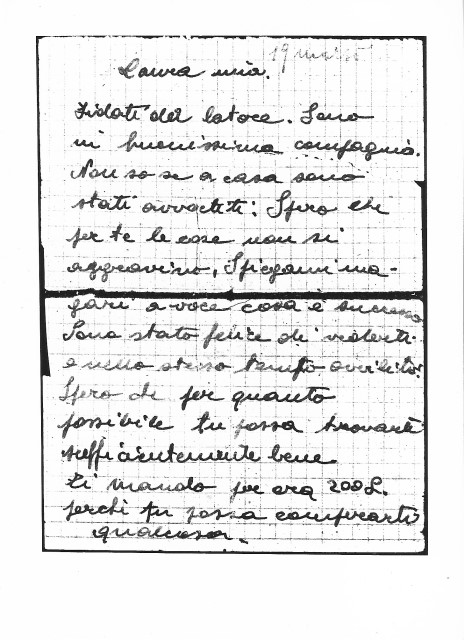 19 marzo
Laura mia.
Fidati del latore. Sono
in buonissima compagnia.
Non so se a casa sono
stati avvertiti. Spero che
per te le cose non si
aggravino, Spiegami ma-
gari a voce cosa è successo
Sono stato felice di vederti
e nello stesso tempo avvilito.
Spero che per quanto
possibile tu possa trovarti
sufficientemente bene
ti mando per ora 200 L.
perché tu possa comprarti
qualcosa.